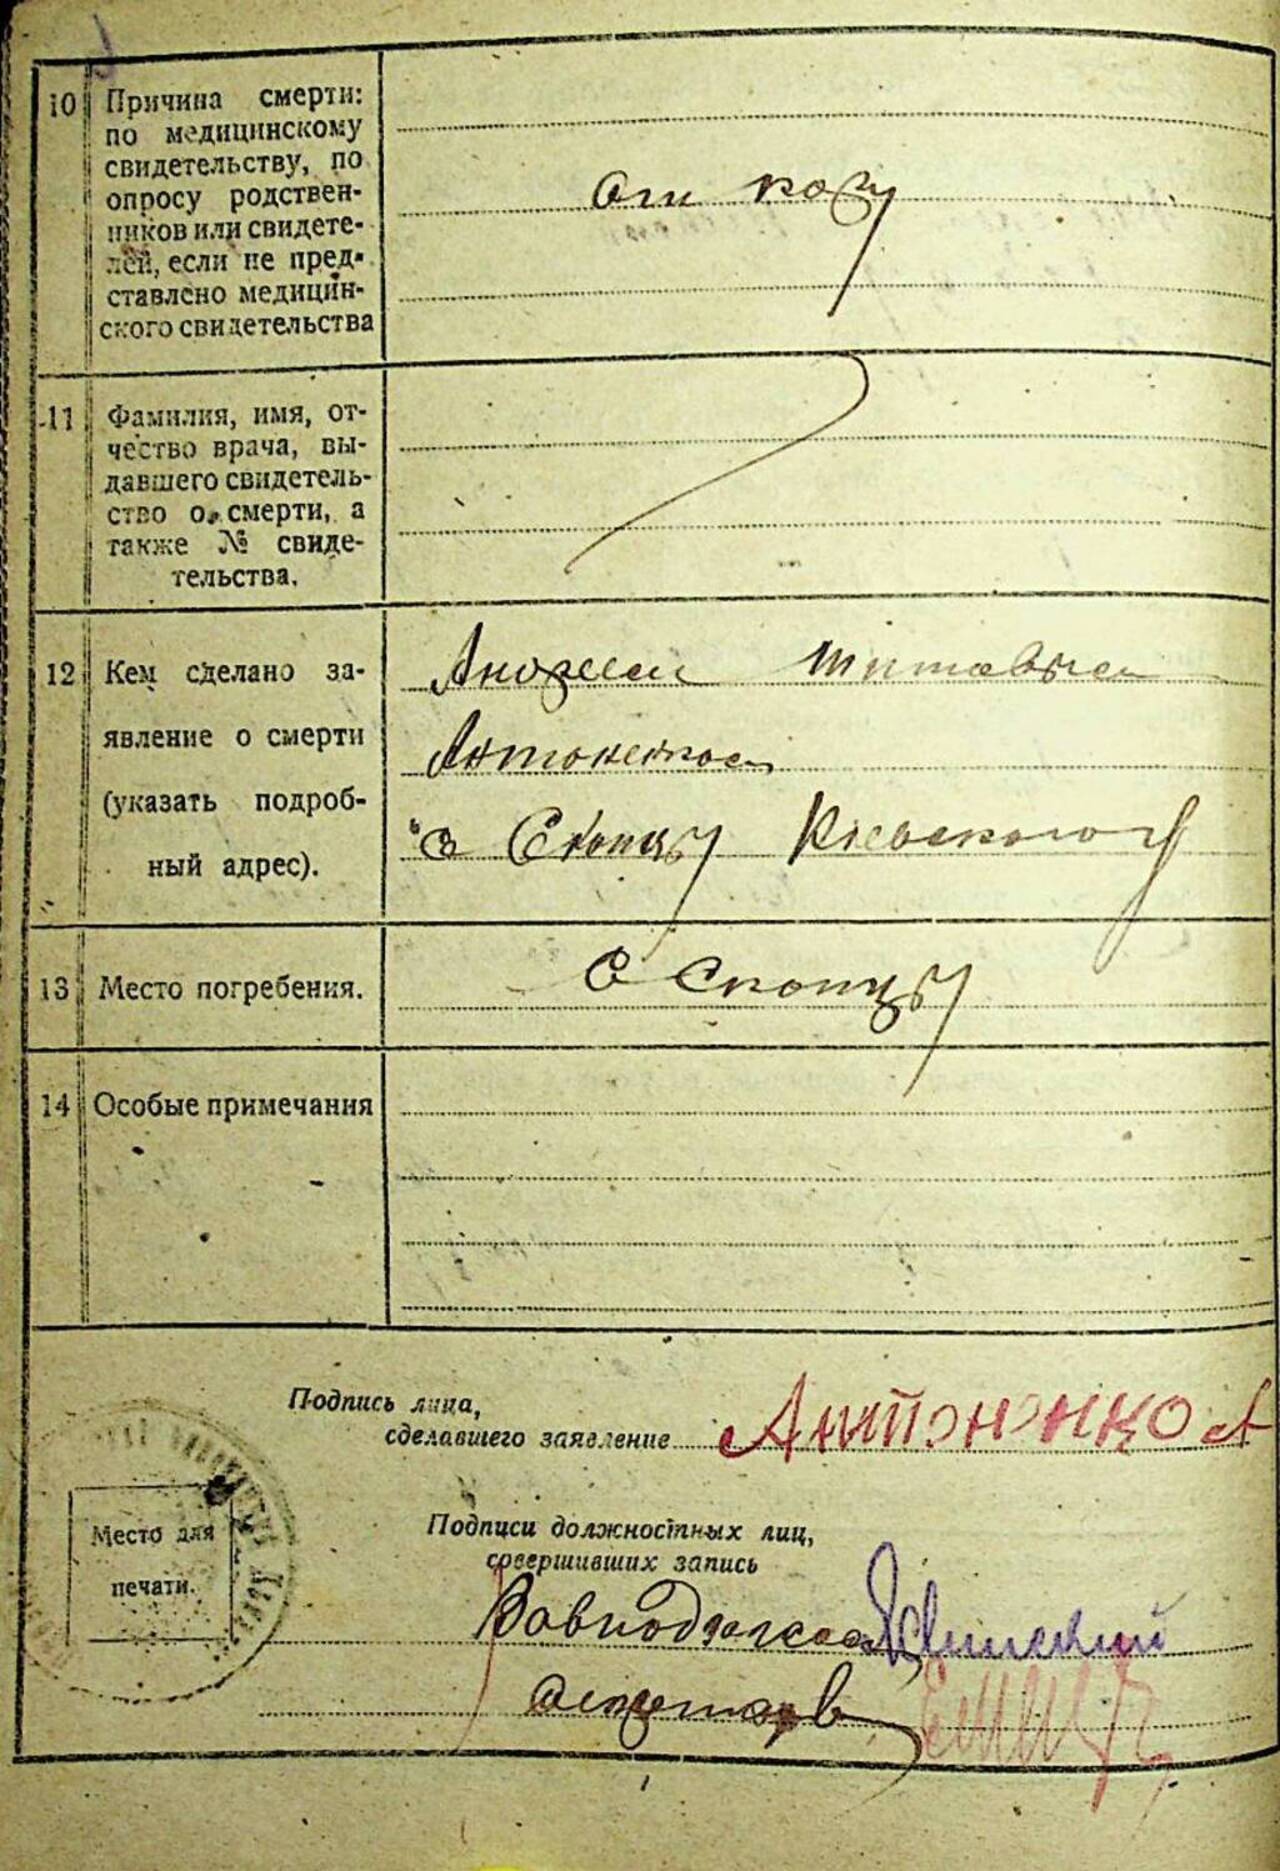 10 Причина смерти:
по медицинскому
свидетельству, по
опросу родствен-
ников или свидете-
лей, если не пред-
ставлено медицин-
ского свидетельства
От косу
11 Фамилия, имя, от-
чество врача, вы-
давшего свидетель-
ство о смерти, а
также № свиде-
тельства.
12 Кем сделано за-
явление о смерти
(указать подроб-
ный адрес).
Андрей
Антоненко
с Скопцы
13 Место погребения.
С Скопцы
14 Особые примечания
Подпись лица,
сделавшего заявление
Антоненко А
Место для
печати.
Подписи должностных лиц,
совершивших запись